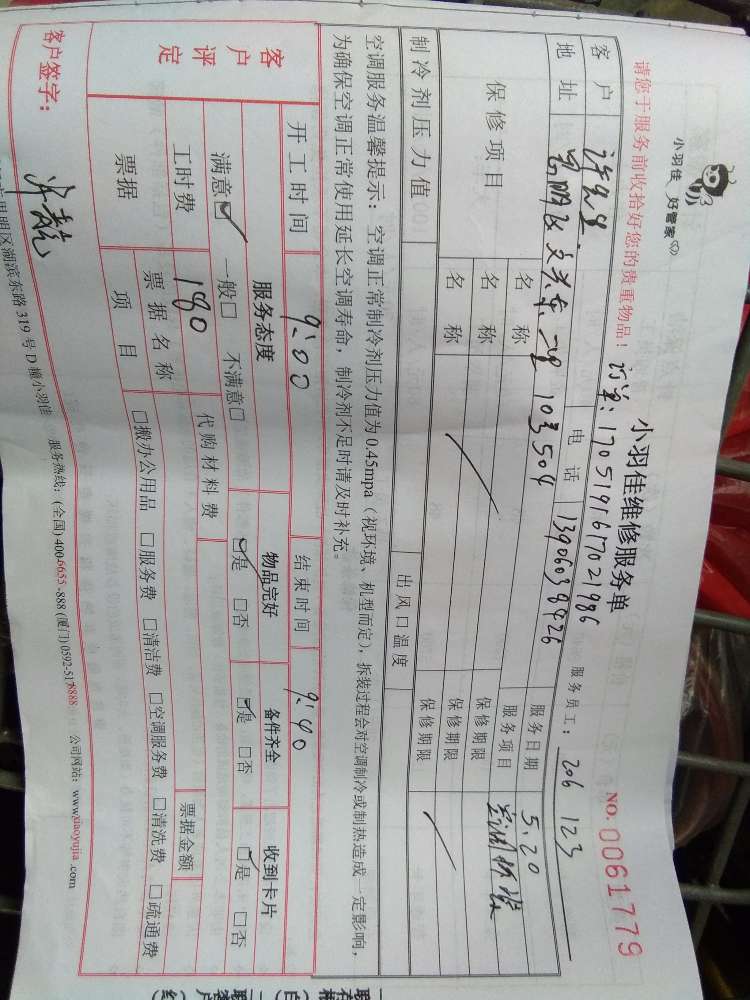 小羽佳 好管家
小羽佳维修服务单
NO. 0061779
请您于服务前收拾好您的贵重物品！
订单：1705191617021986
服务员工：206 123
客户 许先生 电话 13906038426 服务日期 5.20
地址 东一里 103504 服务项目 空调拆装
保修项目 名称 保修期限
名称 保修期限
名称 保修期限
制冷剂压力值 出风口温度
空调服务温馨提示：空调正常制冷剂压力值为0.45mpa（视环境、机型而定），拆装过程会对空调制冷或制热造成一定影响，
为确保空调正常使用延长空调寿命，制冷剂不足时请及时补充。
开工时间 9:00 结束时间 9:40
客户评定 服务态度 物品完好 备件齐全 收到卡片
满意☑ 一般□ 不满意□ ☑是 □否 ☑是 □否 ☑是 □否
工时费 180 代购材料费
票据 票据名称 票据金额
项目 □搬办公用品 □服务费 □清洁费 □空调服务费 □清洗费 □疏通费
客户签字：
思明区湖滨东路319号D幢小羽佳 服务热线：(全国) 400-6655-888 (厦门) 0592-5178888 公司网站：www.xiaoyujia.com